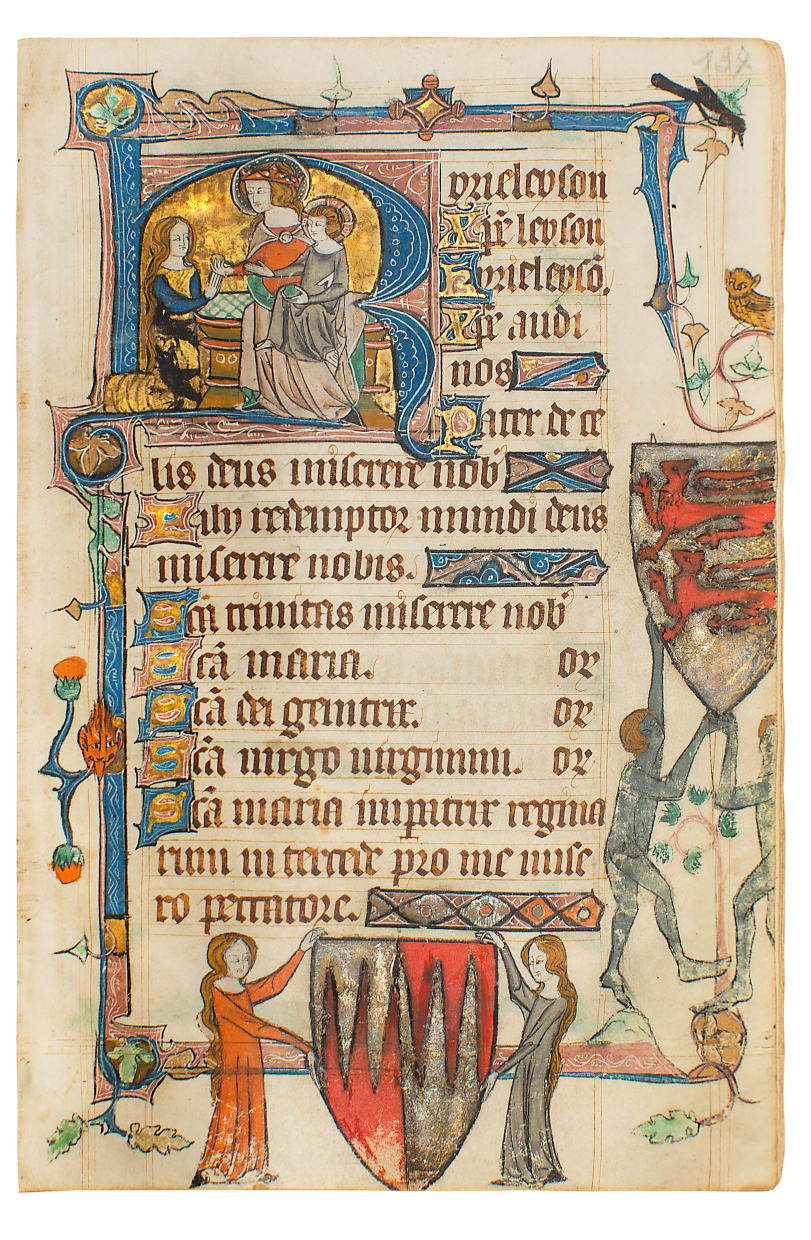 Kyrieleyson
Xpē leyson
Kyrieleysō.
Xpē audi
nos
Pater de ce
lis deus miserere nob
Fily redemptor mundi deus
miserere nobis.
Scā trinitas miserere nob
Scā maria. or
Scā dei genitrix. or
Scā virgo virginum. or
Scā maria inpatrix regina
rum intercede pro me mise
ro peccatore.